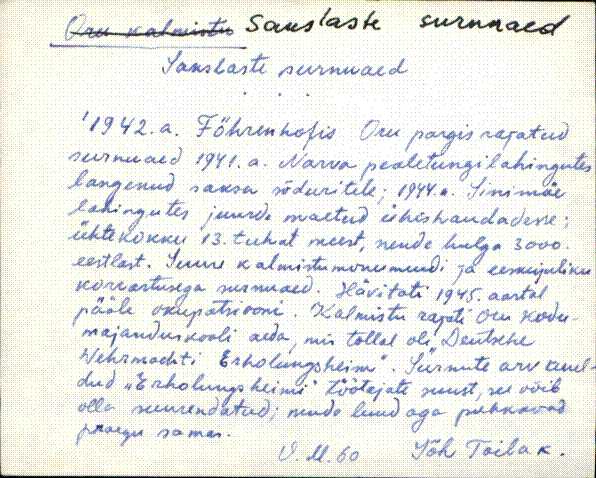 Oru kalmistu Sakslaste surnuaed
Sakslaste surnuaed
1942. a. Föhrenhofis Oru pargis rajatud
surnuaed 1941. a. Narva pealetungilahingutes
langenud saksa sõduritele; 1944. a. Sinimäe
lahingutes juurde maetud ühishaudadesse;
ühtekokku 13. tuhat meest, nende hulga 3000.
eestlast. Suure kalmistumonumendi ja eeskujuliku
korrastusega surnuaed. Hävitati 1945. aastal
pääle okupatsiooni. Kalmistu rajati Oru Kodu-
majanduskooli aeda, mis tollal oli „Deutsche
Wehrmachti Erholungsheim". Surnute arv kuul-
dud „Erholungsheimi" töötajate suust, see võib
olla suurendatud; nende luud aga puhkavad
praegu samas.
V. M. 60 Jõh Toila k.